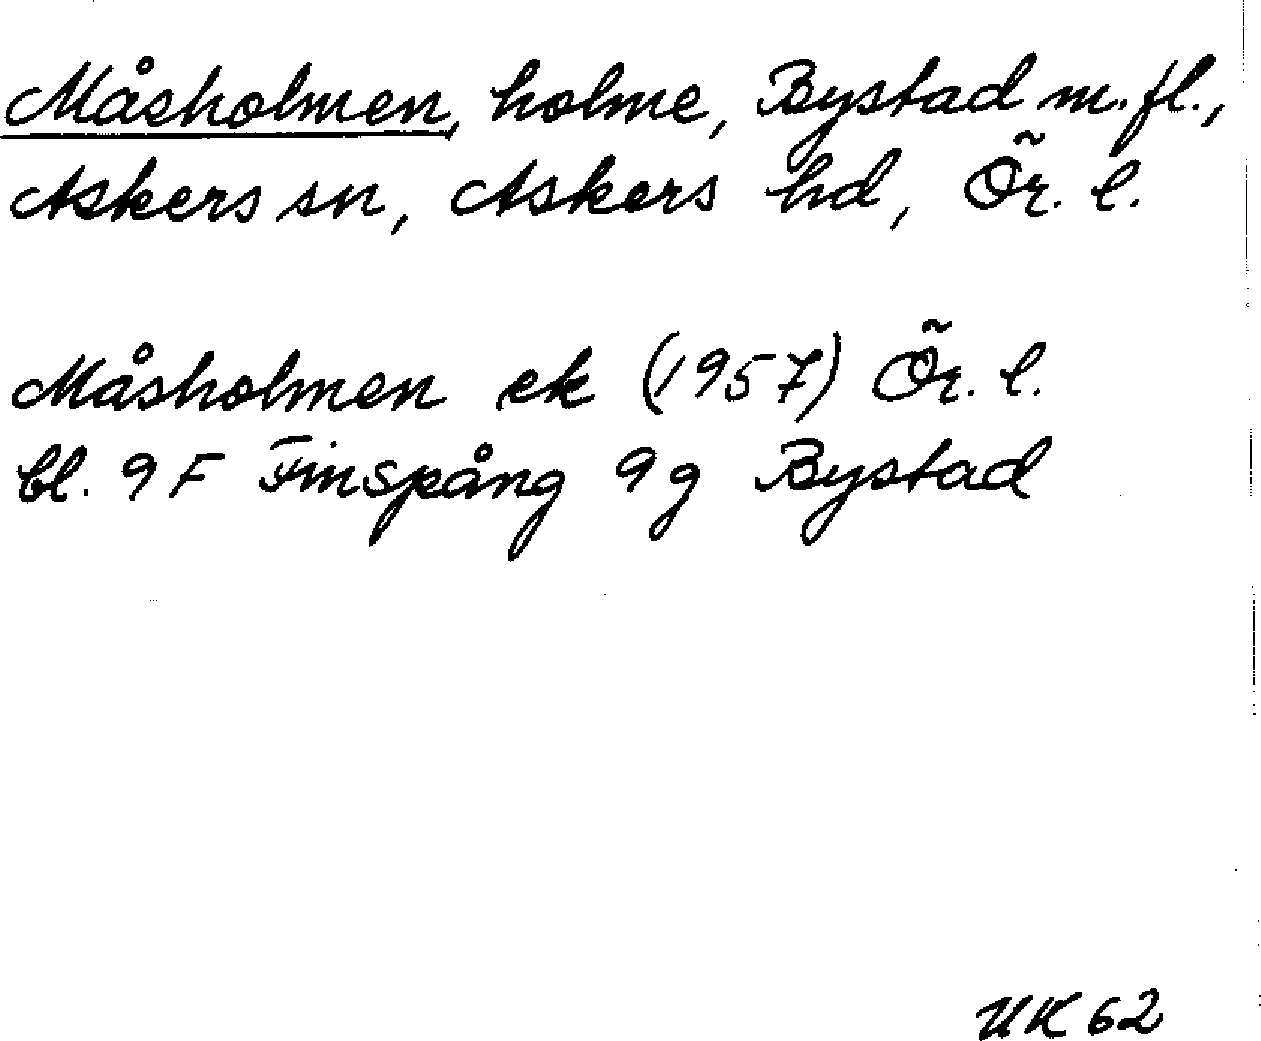 Måsholmen, holme, Bystad m.fl.,
Askers sn, Askers hd, Ör. l.
Måsholmen ek (1957) Ör. l.
bl. 9 F Finspång 9 g Bystad
UK 62